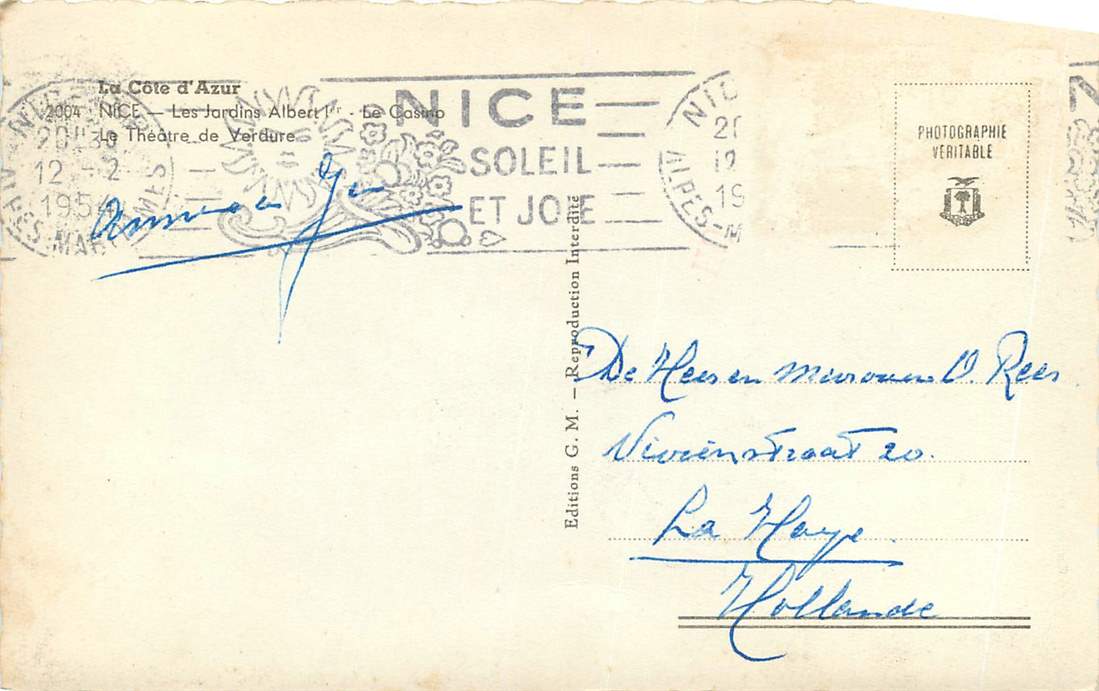 La Côte d'Azur
2004 NICE — Les Jardins Albert Iᵉʳ - Le Casino
Le Théâtre de Verdure
NICE
12 - 2
1954
ALPES-MARITIMES
NICE
SOLEIL
ET JOIE
NIC
20
12
19
ALPES-M
PHOTOGRAPHIE
VÉRITABLE
Editions G. M. — Reproduction Interdite
De Heer en Mevrouw O. Rees
Vivienstraat 20.
La Haye
Hollande